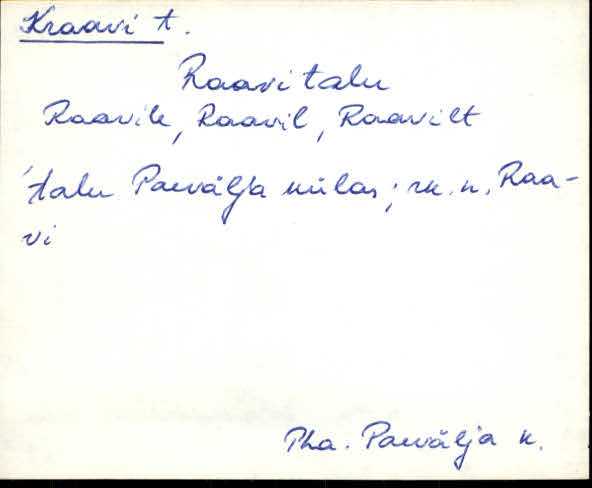 Kraavi t.
Raavi talu
Raavile, Raavil, Raavilt
talu Paevälja külas; rk. n. Raa-
vi
Pha. Paevälja k.